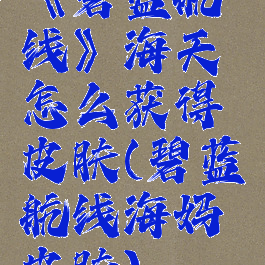 《碧蓝航
线》海天
怎么获得
皮肤(碧蓝
航线海妈
皮肤)